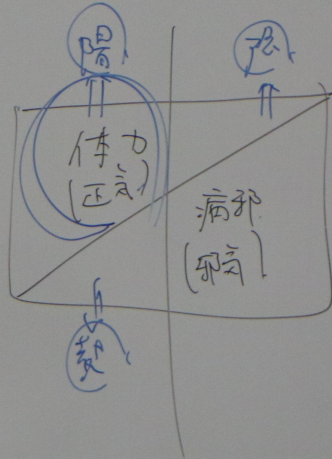 陽
陰
体力
(正気)
病邪
(邪気)
熱